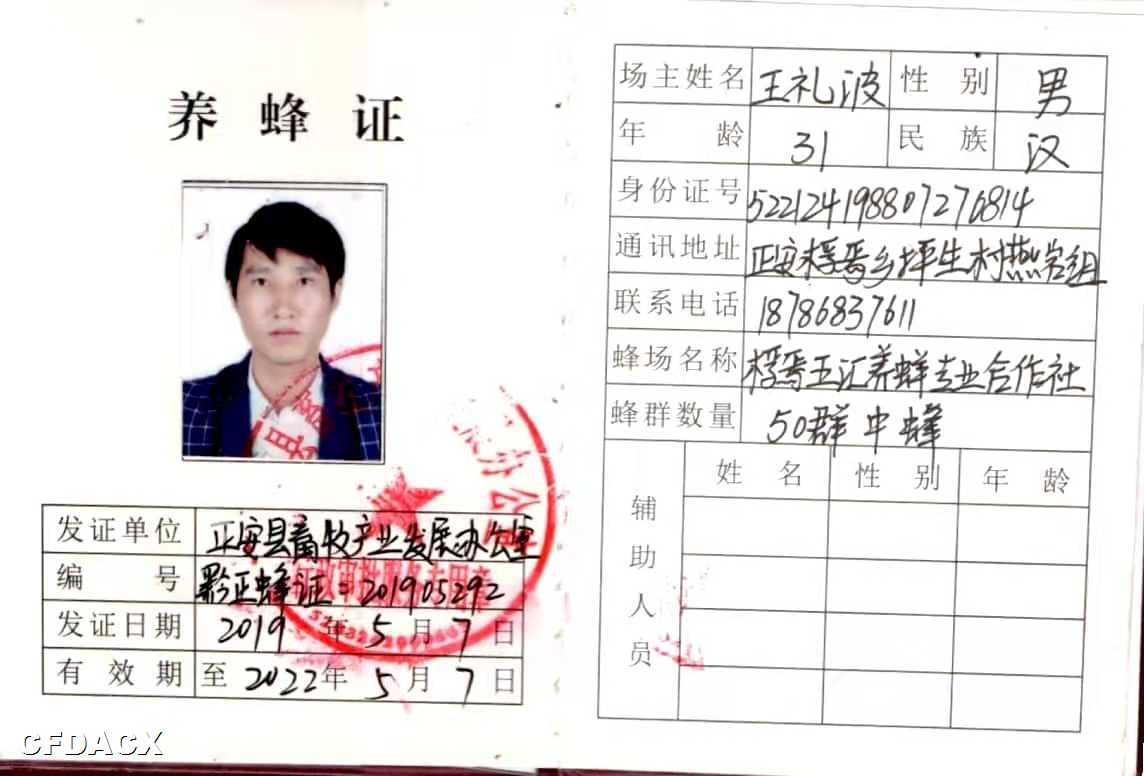 养蜂证
发证单位 正安县畜牧产业发展办公室
编号 黔正蜂证:201905292
发证日期 2019年5月7日
有效期 至2022年5月7日
场主姓名 王礼波 性别 男
年龄 31 民族 汉
身份证号 522124198807276814
通讯地址 正安桴焉乡坪生村燕岩组
联系电话 18786837611
蜂场名称 桴焉五汇养蜂专业合作社
蜂群数量 50群中蜂
辅助人员 姓名 性别 年龄
CFDACX